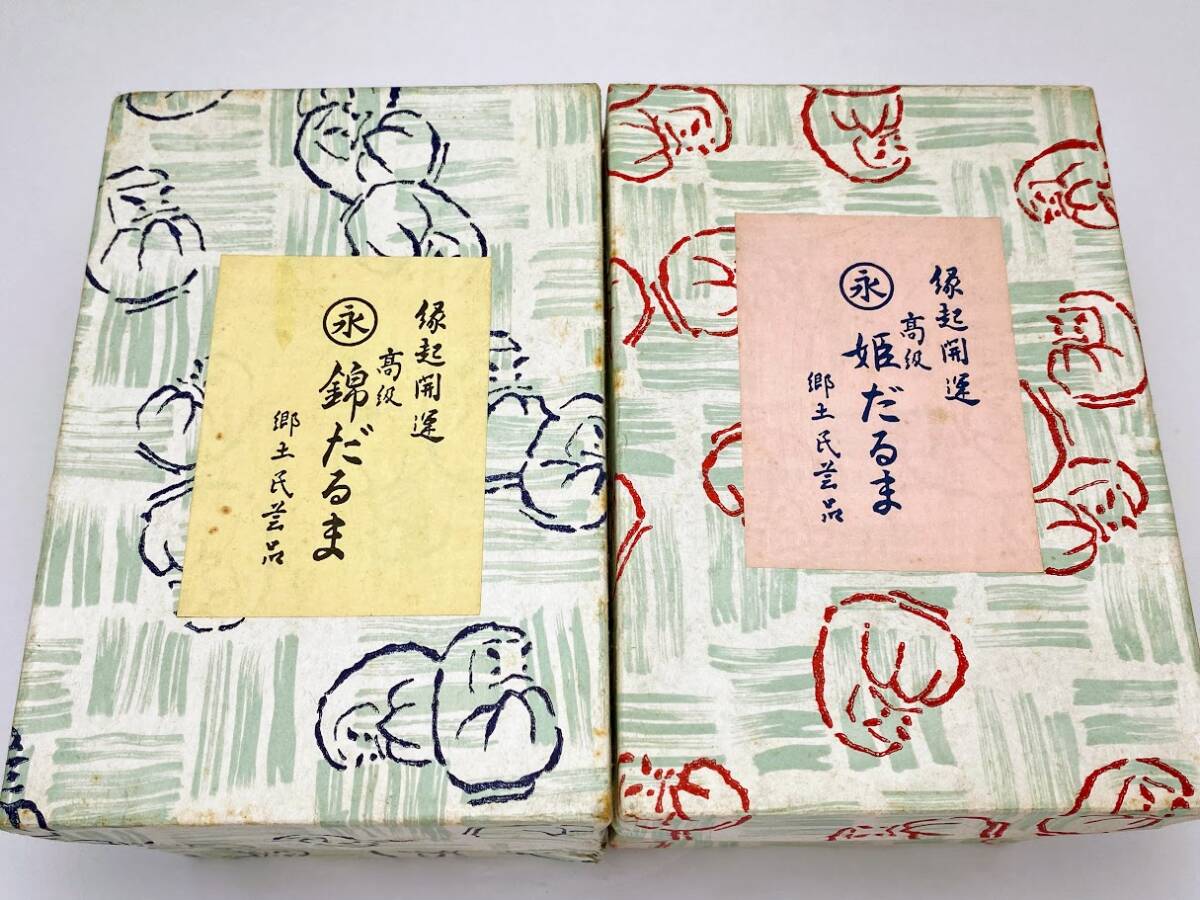 縁起開運
高級
永
錦だるま
郷土民芸品
縁起開運
高級
永
姫だるま
郷土民芸品